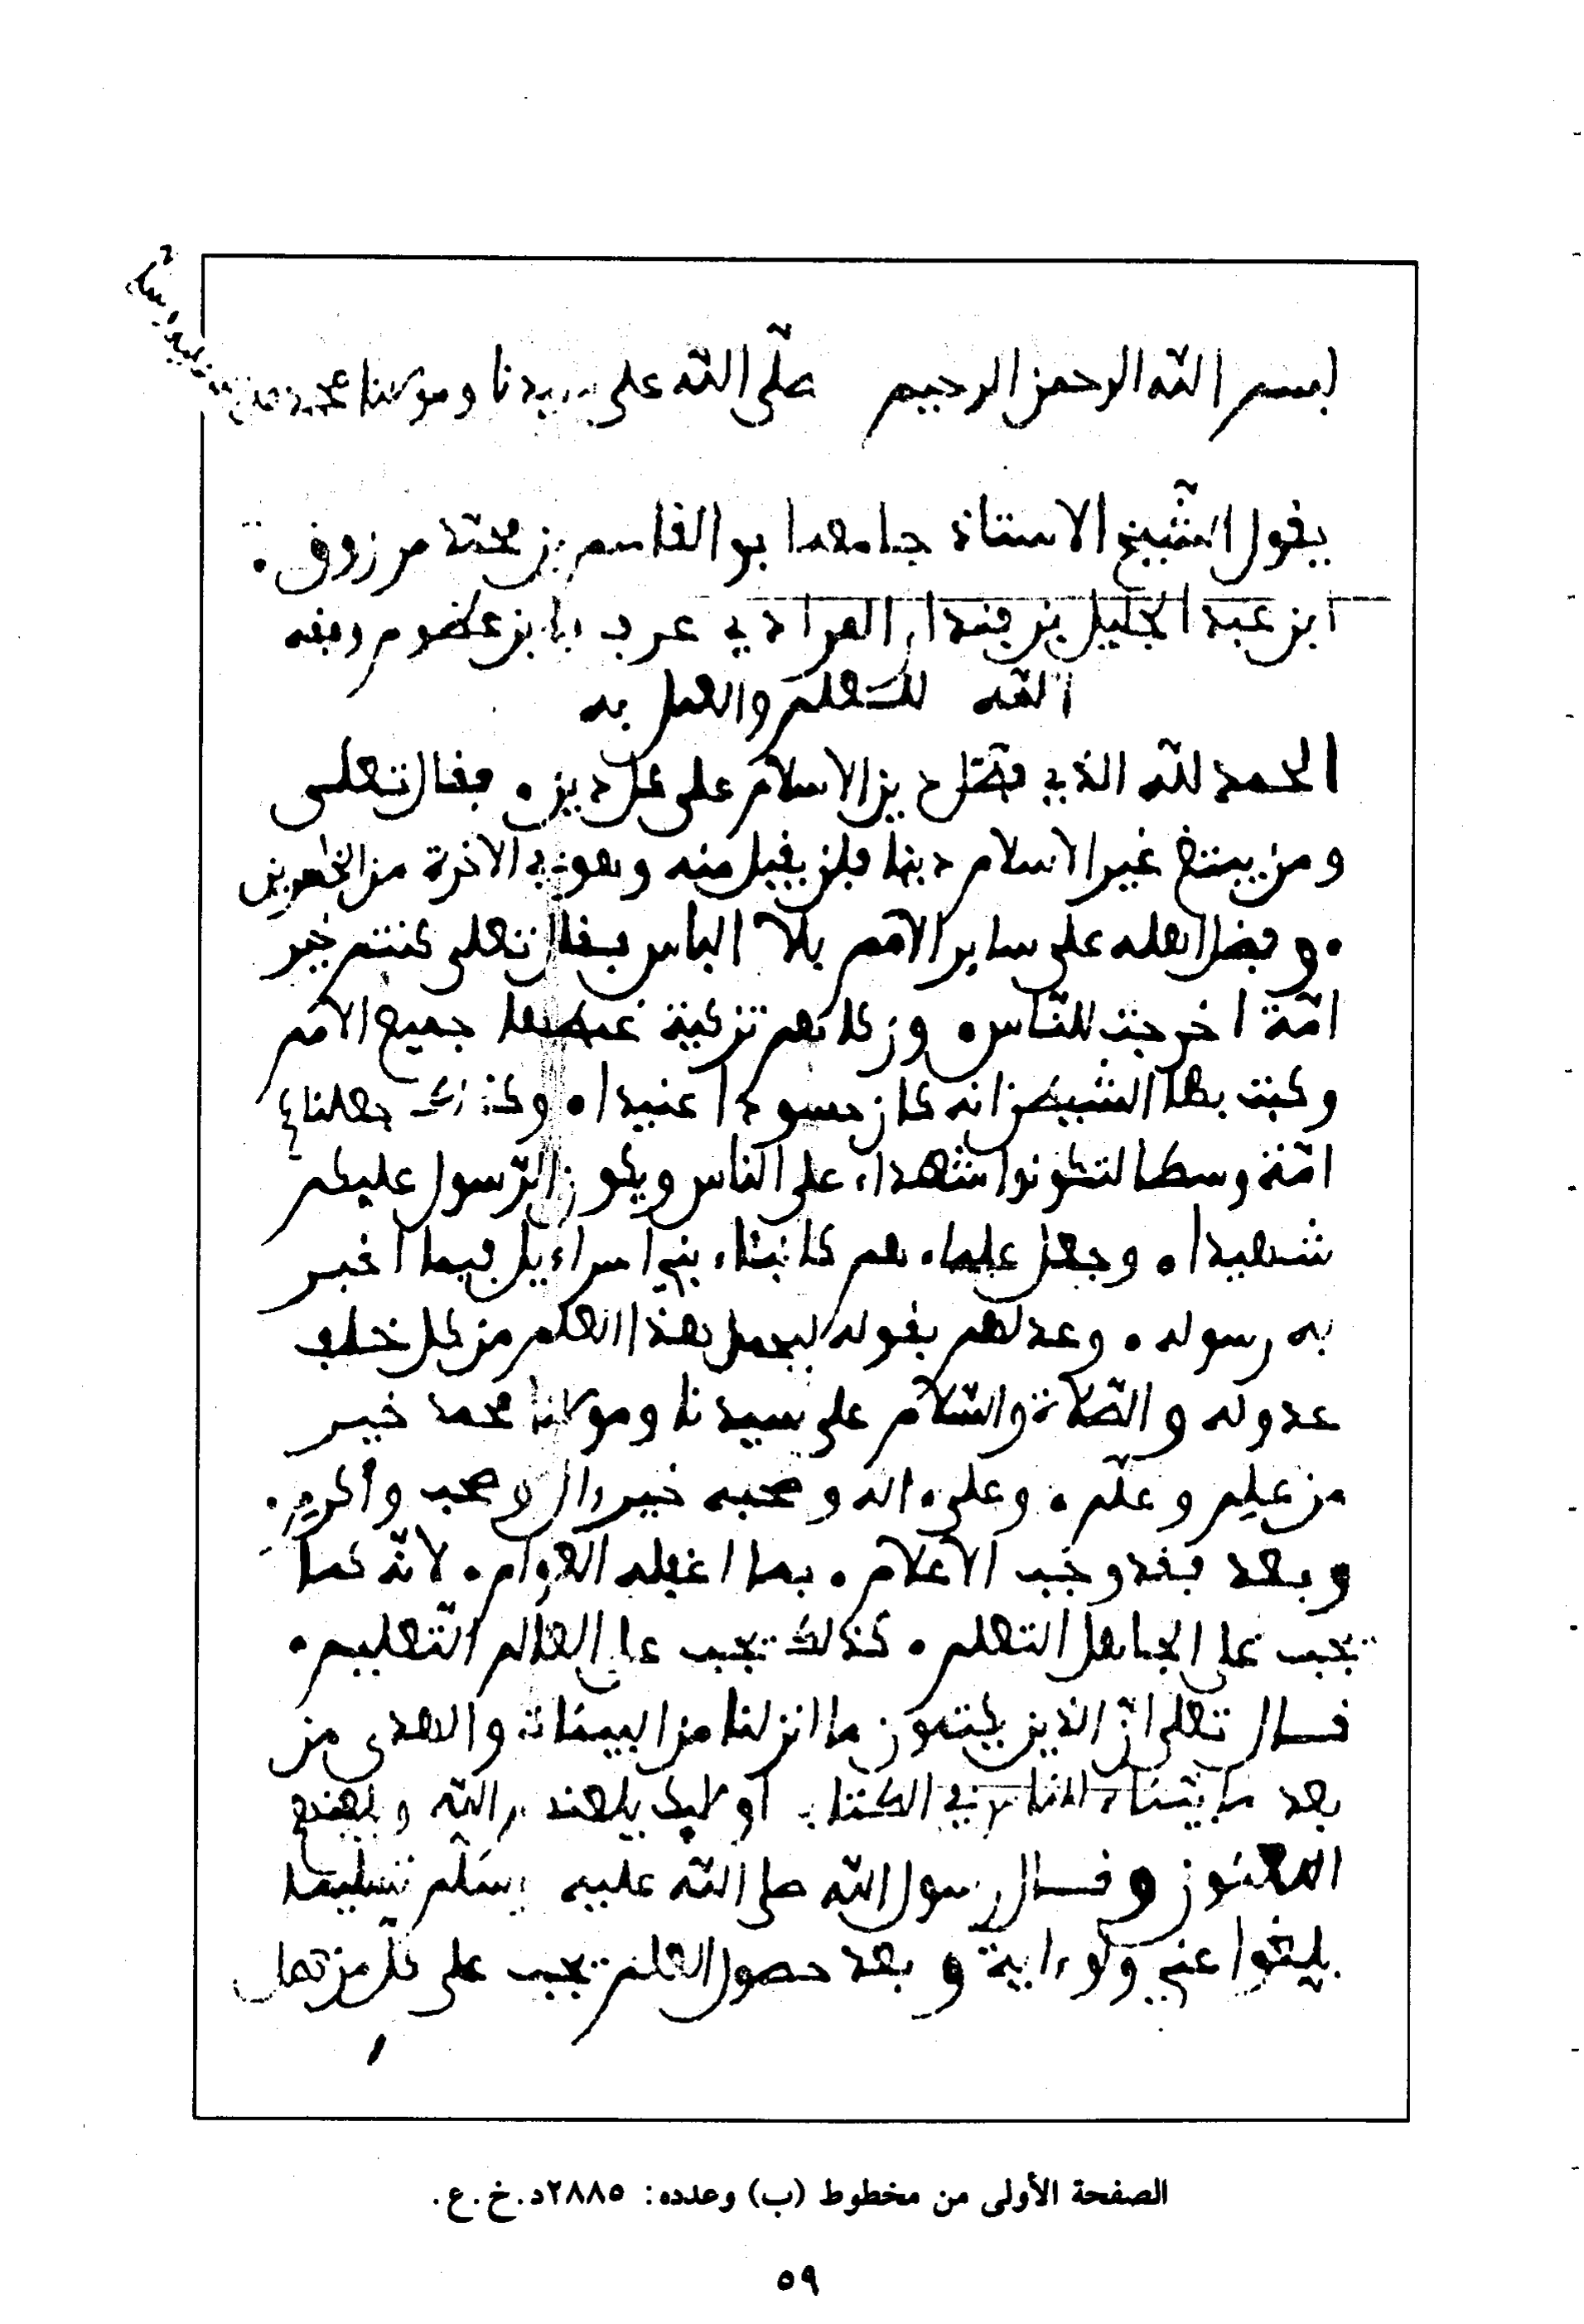 بسم الله الرحمن الرحيم صلى الله على سيدنا ومولانا محمد
يقول الشيخ الاستاذ جامعها بو القاسم بن محمد مرزوق
ابن عبد الجليل بن فندار المرادي عرف بابن عظوم وفقه
الله للعلم والعمل به
الحمد لله الذي فضل دين الاسلام على كل دين، فقال تعلى
ومن يبتغ غير الاسلام دينا فلن يقبل منه وهو في الاخرة من الخسرين
وفضل اهله على ساير الامم بلا الباس فقال تعلى كنتم خير
امة اخرجت للناس، وزكاهم تزكية غبطها جميع الامم
وكبت بها الشيطن انه كان حسودا عنيدا، وكذلك جعلناكم
امة وسطا لتكونوا شهداء على الناس ويكون الرسول عليكم
شهيدا، وجعل علماءهم كانبياء بني اسراءيل فيما اخبر
به رسوله، وعدلهم بقوله ليحمل هذا العلم من كل خلف
عدوله والصلاة والسلام على سيدنا ومولانا محمد خير
من علم وعلم، وعلى ءاله وصحبه خير ءال وصحب وأكرم،
وبعد فقد وجب الاعلام، بما اغفله العوام، لانه كما
يجب على الجاهل التعلم، كذلك يجب على العالم التعليم،
قال تعلى ان الذين يكتمون ما انزلنا من البينات والهدى من
بعد ما بيناه للناس في الكتاب اولايك يلعنهم الله ويلعنهم
اللعنون وقال رسول الله صلى الله عليه وسلم تسليما
بلغوا عني ولو ءاية وبعد حصول العلم يجب على كل من تعل
الصفحة الأولى من مخطوط (ب) وعدده: ٢٨٨٥د.خ.ع.
٥٩